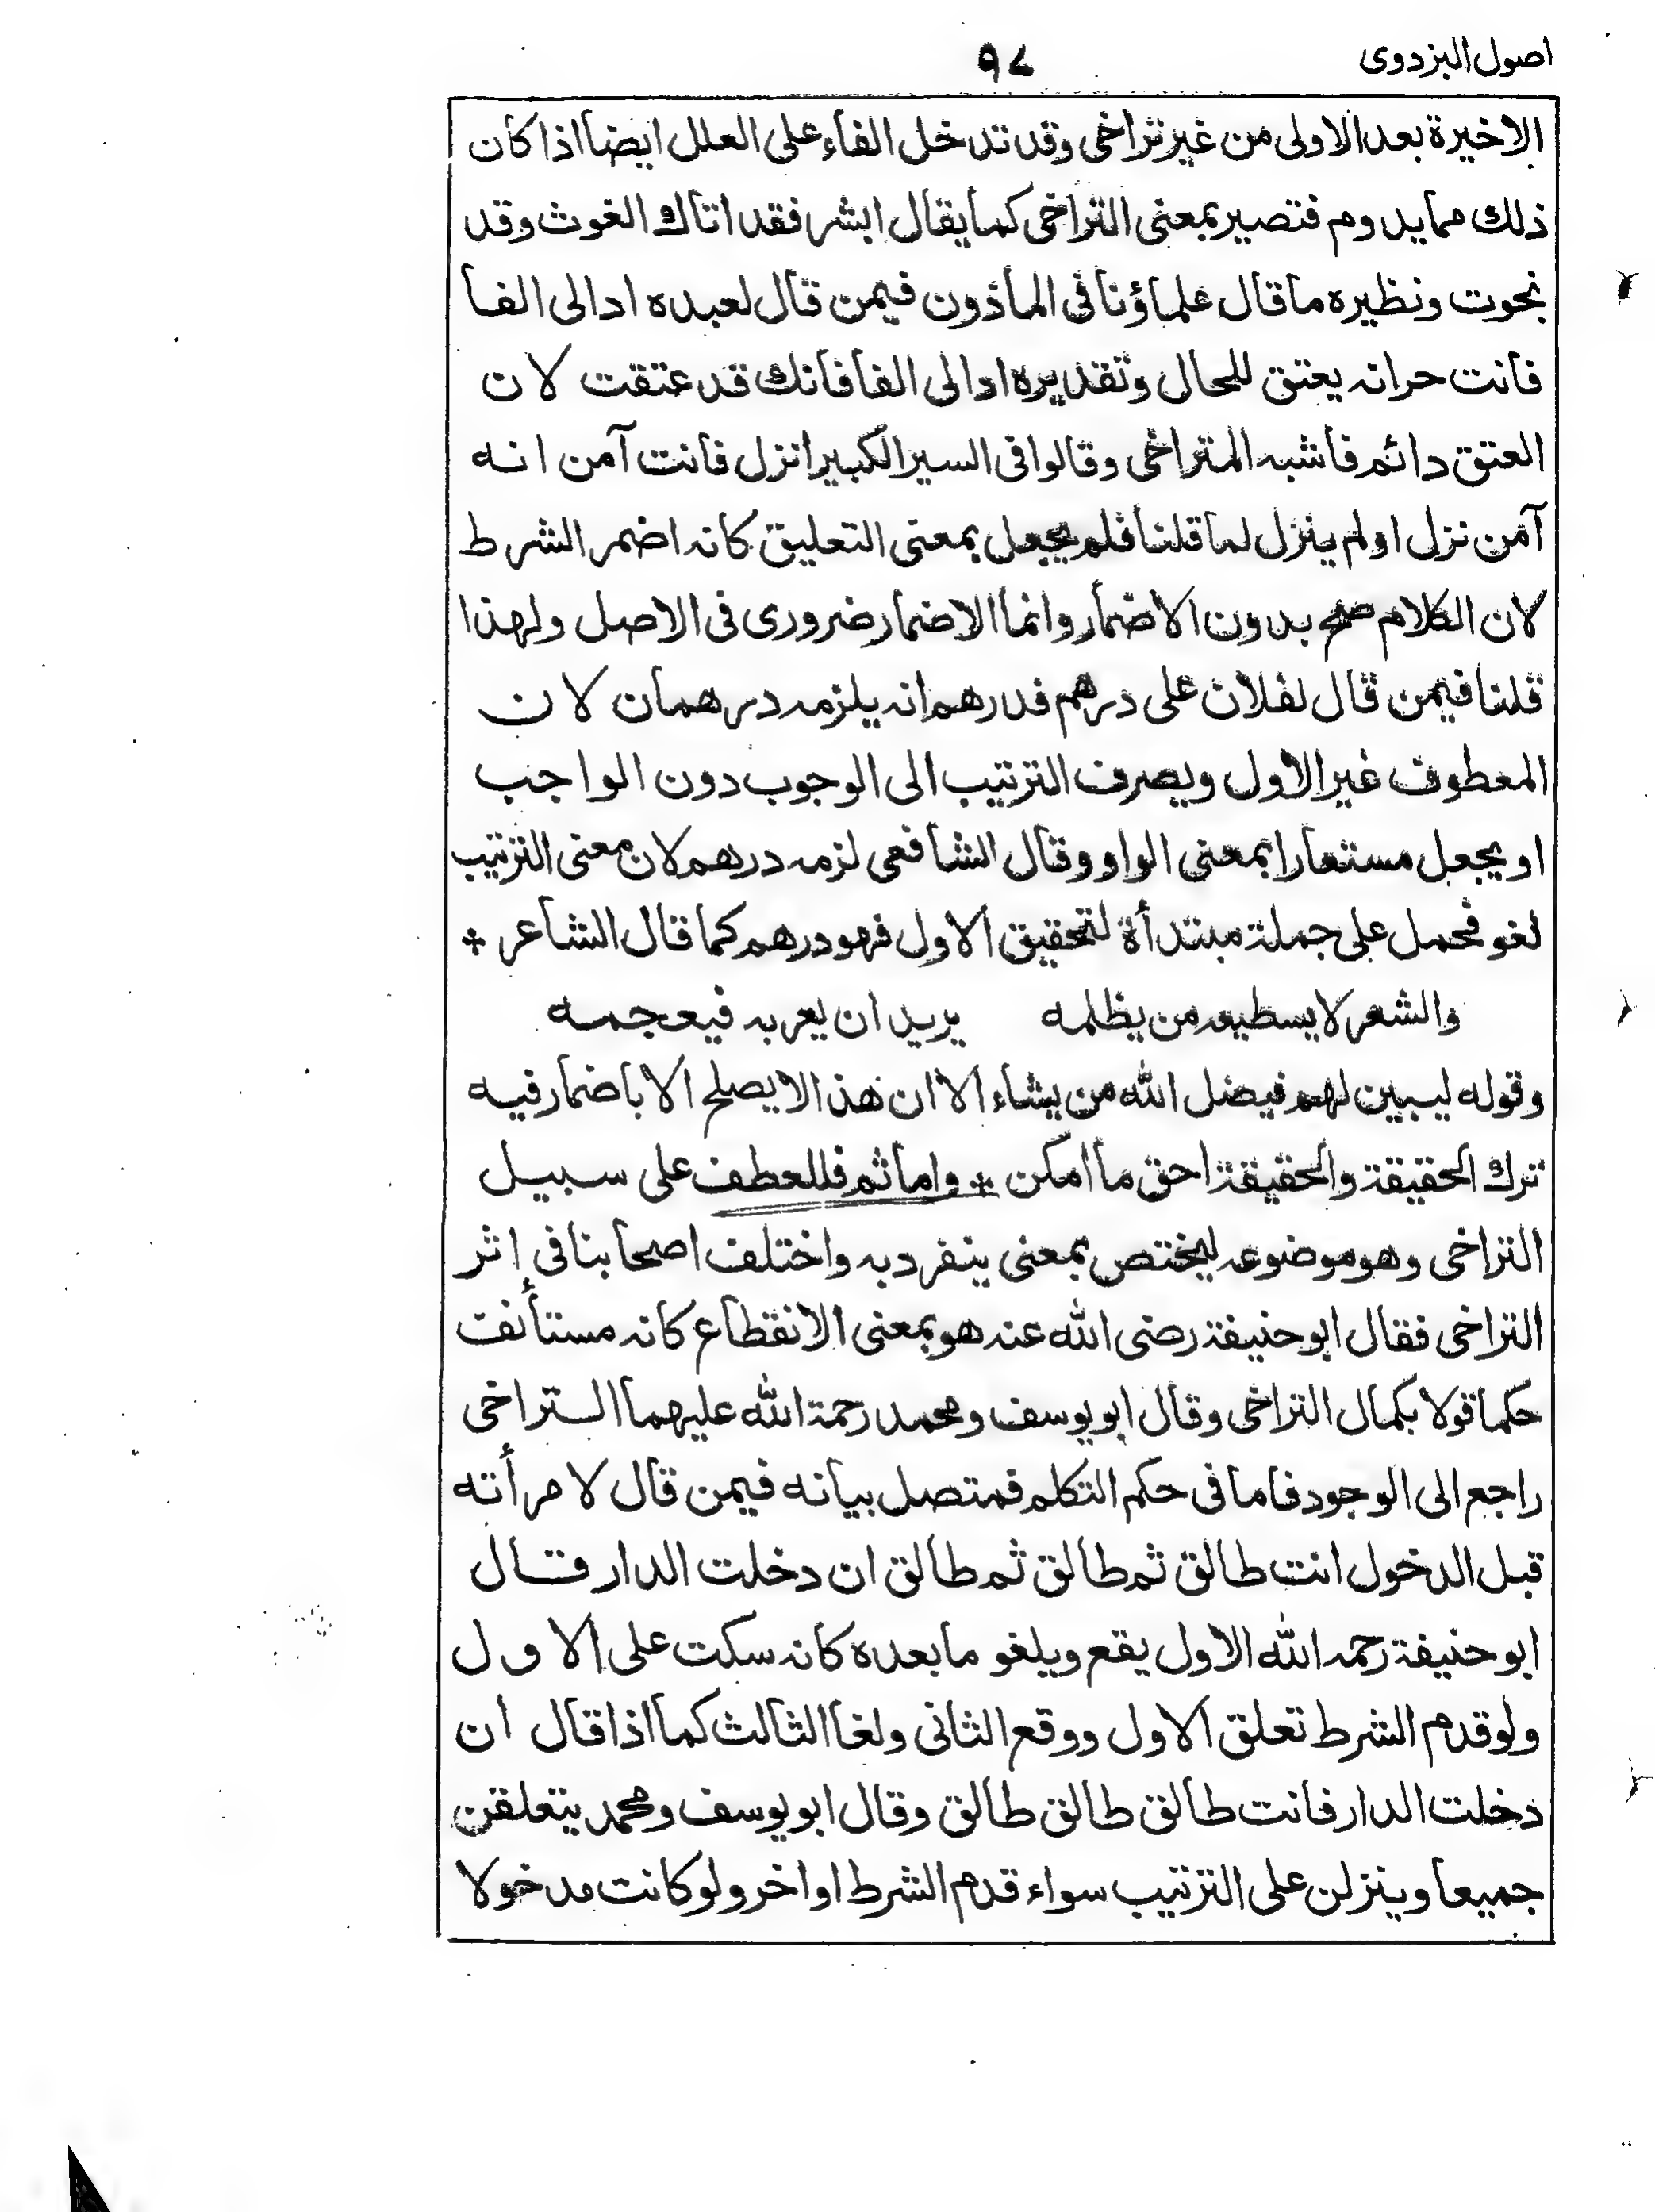 اصول البزدوی
٩٨
الاخيرة بعد الاولى من غير تراخى وقد تدخل الفاء على العلل ايضا اذا كان
ذلك مما يدوم فتصير بمعنى التراخى كما يقال ابشر فقد اتاك الغوث وقد
نجوت ونظيره ما قال علماؤنا فى الماذون فيمن قال لعبده اد الى الفا
فانت حر انه يعتق للحال وتقديره اد الى الفا فانك قد عتقت لان
العتق دائم فاشبه المتراخى وقالوا فى السير الكبير انزل فانت آمن انه
آمن نزل او لم ينزل لما قلنا فلم يجعل بمعنى التعليق كانه اضمر الشرط
لان الكلام صح بدون الاضمار وانما الاضمار ضرورى فى الاصل ولهذا
قلنا فيمن قال لفلان على درهم فدرهم انه يلزمه درهمان لان
المعطوف غير الاول ويصرف الترتيب الى الوجوب دون الواجب
او يجعل مستعارا بمعنى الواو وقال الشافعى لزمه درهم لان معنى الترتيب
لغو فحمل على جملة مبتدأة لتحقيق الاول فهو درهم كما قال الشاعر +
والشعر لا يسطيعه من يظلمه يريد ان يعربه فيعجمه
وقوله ليبين لهم فيضل الله من يشاء الا ان هذا لا يصلح الا باضمار فيه
ترك الحقيقة والحقيقة احق ما امكن + واما ثم فللعطف على سبيل
التراخى وهو موضوعه ليختص بمعنى ينفرد به واختلف اصحابنا فى اثر
التراخى فقال ابو حنيفة رضى الله عنه هو بمعنى الانقطاع كانه مستأنف
حكما قولا بكمال التراخى وقال ابو يوسف ومحمد رحمة الله عليهما التراخى
راجع الى الوجود فاما فى حكم التكلم فمتصل بيانه فيمن قال لامرأته
قبل الدخول انت طالق ثم طالق ثم طالق ان دخلت الدار قال
ابو حنيفة رحمه الله الاول يقع ويلغو ما بعده كانه سكت على الاول
ولو قدم الشرط تعلق الاول ووقع الثانى ولغا الثالث كما اذا قال ان
دخلت الدار فانت طالق طالق طالق وقال ابو يوسف ومحمد يتعلقن
جميعا وينزلن على الترتيب سواء قدم الشرط او اخر ولو كانت مدخولا